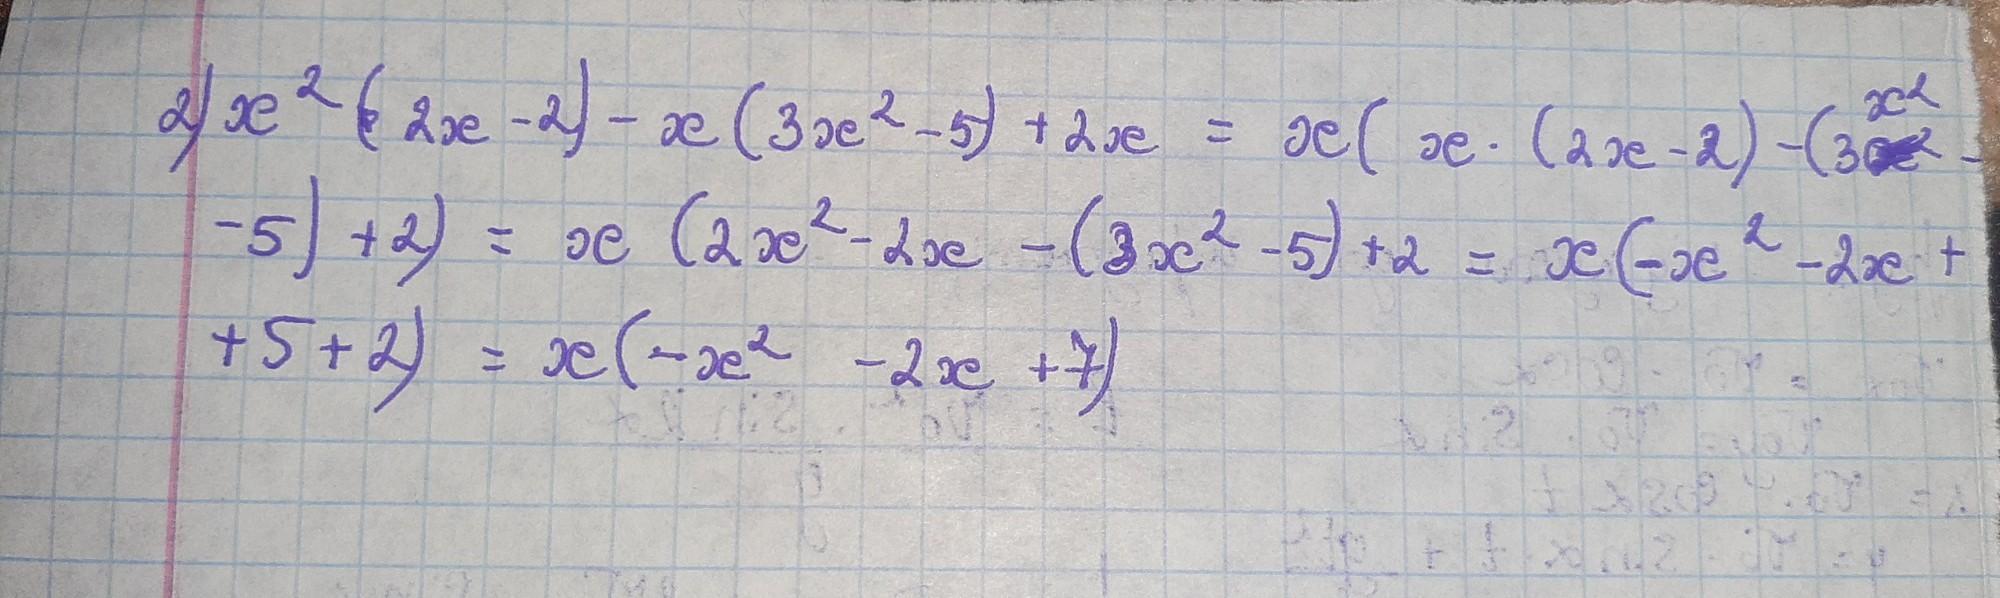 2) x² (2x - 2) - x (3x² - 5) + 2x = x( x · (2x - 2) - (3x² -
- 5) + 2) = x (2x² - 2x - (3x² - 5) + 2 = x (-x² - 2x +
+ 5 + 2) = x (-x² - 2x + 7)